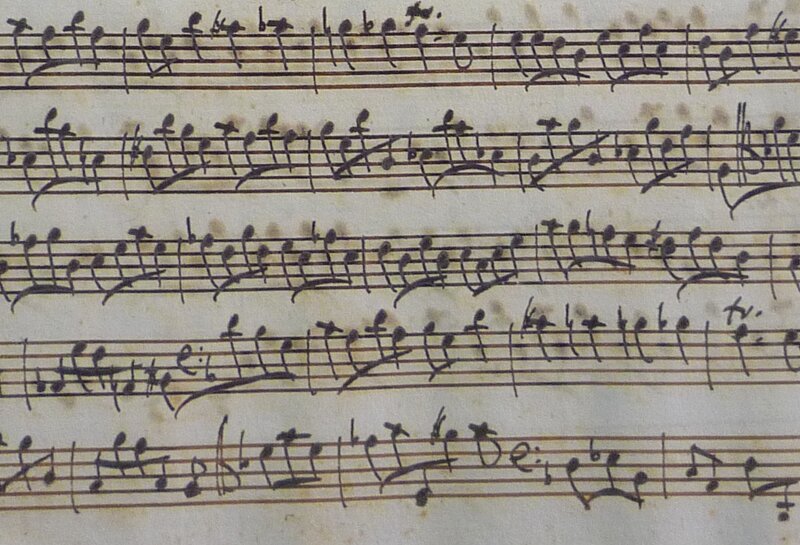 tr.
tr.